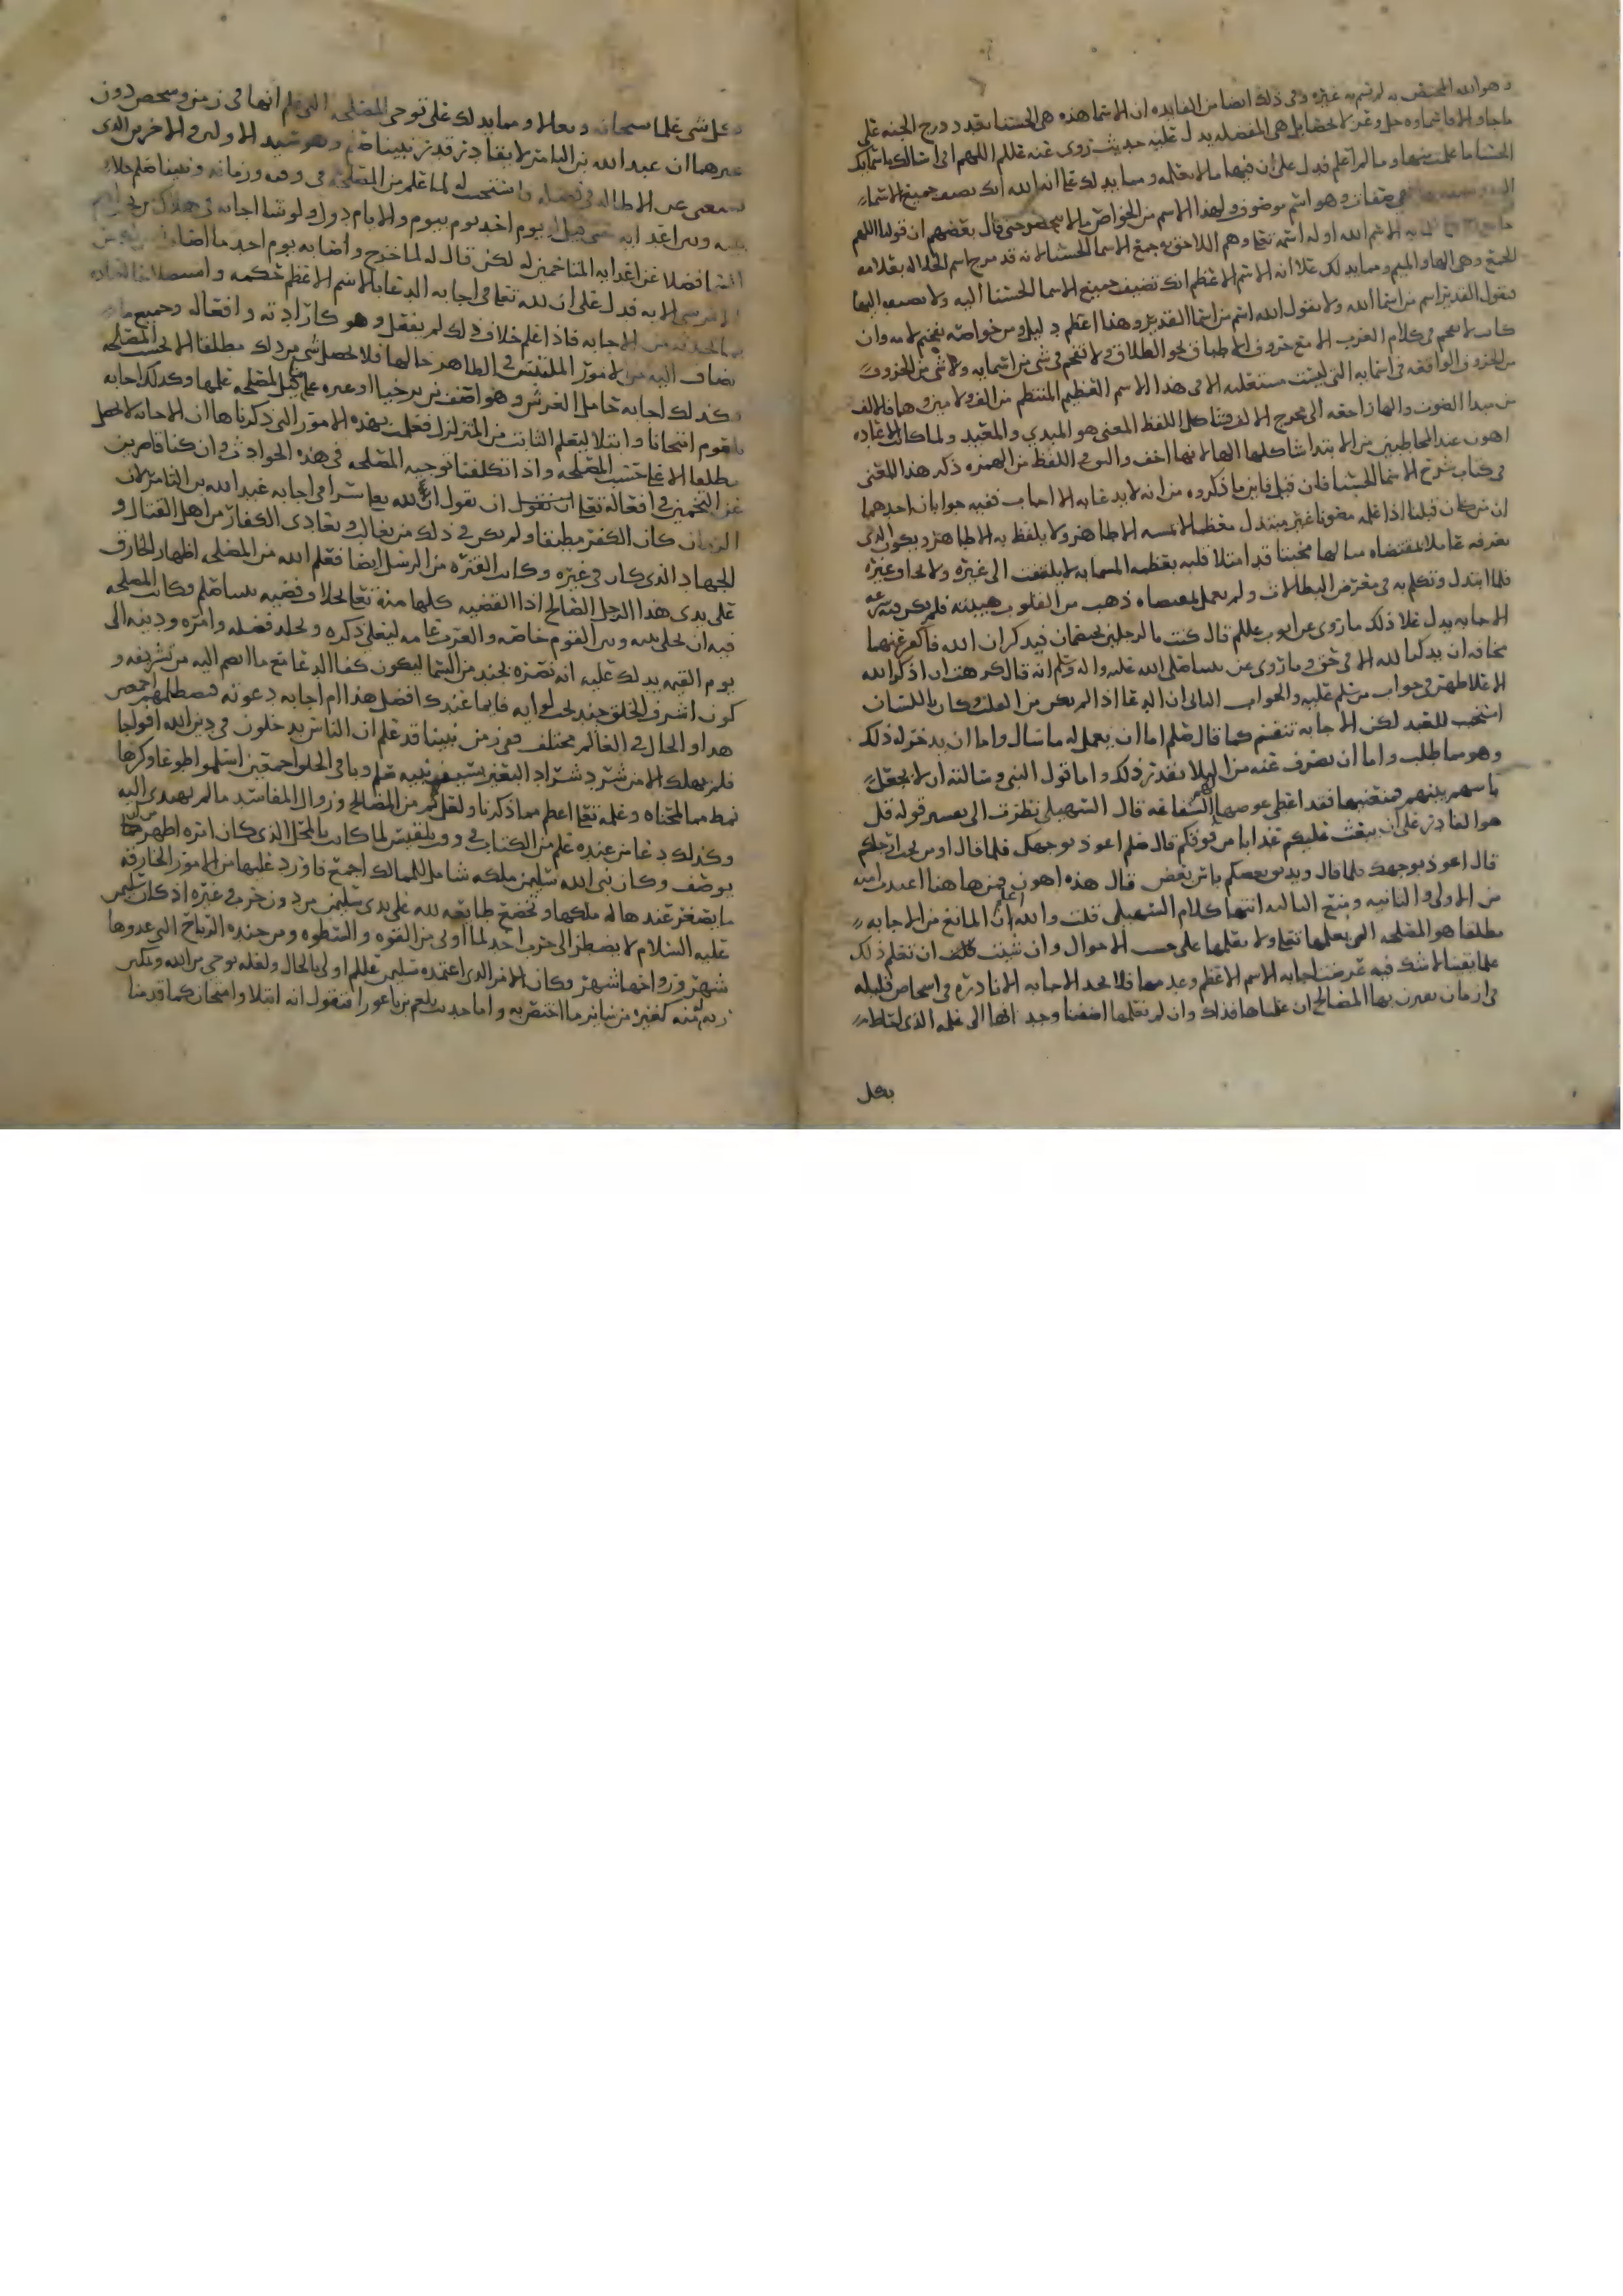 وهو الله المختص به لم يسم به غيره وفي ذلك ايضا من الفايده ان الاسما هذه هي الحسنا بعدد درج الجنه على
ما جا والا فاسماوه جل وعز لا تحصا بل هي المفضله يدل عليه حديث روي عنه عللم اللهم اني اسالك باسمايك
الحسنا ما علمت منها وما لم اعلم فدل على ان فيها ما لا نعلمه ومما يدلك على انه الله انك تضيف جميع الاسماء
وهو اسم موضوع ولهذا الاسم من الخواص ما لا يحصى حتى قال بعضهم ان قولنا اللهم
الاسما الحسنا لانه قد مزج اسم الجلاله بعلامه
الجمع وهي الها والميم ومما يدلك على انه الاسم الاعظم انك تضيف جميع الاسما الحسنا اليه ولا تضيفه اليها
فتقول القدير اسم من اسما الله ولا تقول الله اسم من اسما القدير وهذا اعظم دليل ومن خواصه تفخيم لامه وان
كانت لا تفخم في كلام العرب الا مع حروف الاطباق نحو الطلاق ولا تفخم في شي من اسمايه ولا شي من الحروف
من الحروف الواقعه في اسمايه التي ليست مستعليه الا في هذا الاسم العظيم المنتظم من الف ولامين وها فالالف
من مبدا الصوت والها راجعه الى مخرج الالف فشاكل اللفظ المعنى هو المبدي والمعيد ولما كانت الاعاده
اهون عند المخاطبين من الابتدا شاكلها الها لانها اخف والين في اللفظ من الهمزه ذكر هذا المعنى
في كتاب شرح الاسما الحسنا فان قيل فاين ما ذكروه من انه لا يدعا به الا اجاب ففيه جوابان احدهما
ان من كان قبلنا اذا علمه مصونا غير مبتذل معظما لا يمسه الا طاهر ولا يلفظ به الا طاهر ويكون الذي
يعرفه عاملا بمقتضاه متالها مخبتا قد امتلا قلبه بعظمه المسما به لا يلتفت الى غيره ولا يخاف غيره
فلما ابتذل وتكلم به في معرض البطالات ولم يعمل بمقتضاه ذهب من القلوب هيبته فلم يكن فيه سرعه
الاجابه يدل على ذلك ما روي عن ايوب عللم قال كنت ما لرجلين يختصمان فيذكران الله فاكفر عنهما
مخافه ان يذكرا الله الا في حق وما روي عن نبينا صلى الله عليه واله وسلم انه قال كرهت ان اذكر الله
الا على طهر في جواب من سلم عليه والجواب الثاني ان الدعا اذا لم يكن من القلب وكان باللسان
استجب للعبد لكن الاجابه تنقسم كما قال صلم اما ان يعجل له ما سال واما ان يدخر له ذلك
وهو مما طلب واما ان يصرف عنه من البلا بقدر ذلك واما قول النبي وسالته ان لا يجعل
باسهم بينهم فمنعنيها فقد اعطي عوضها الشفاعه قال السهيلي نظرت الى تفسير قوله قل
هو القادر على ان يبعث عليكم عذابا من فوقكم قال صلم اعوذ بوجهك فلما قال او من تحت ارجلكم
قال اعوذ بوجهك فلما قال ويذيق بعضكم باس بعض قال هذه اهون فمن هاهنا اعيذت امته
من الاولى والثانيه ومنع الثالثه انتها كلام السهيلي قلت والله اعلم ان المانع من الاجابه
مطلقا هو المصلحه التي يعلمها تعا ولا نعلمها على حسب الاحوال وان شيت قلت ان نعلم ذلك
علما يقينا لا شك فيه عرضنا اجابه الاسم الاعظم وعدمها فلا نجد الاجابه الا نادره في اشخاص قليله
في ازمان تعين بها المصالح ان علمناها فذاك وان لم نعلمها اضفنا وجه الها الى علمه الذي احاط
بكل
بكل شي علما سبحانه وتعالا ومما يدلك على توخي المصلحه التي علم انها في زمن وشخص دون
غيرهما ان عبد الله بن الثامر لا يقادر قدر نبينا صلم وهو سيد الاولين والاخرين الذي
يستغنى عن الاطاله في فضله واستجيب له لما علم من المصلحه في وقته وزمانه ونبينا صلم
بينه وبين اعدايه حتى قيل له يوم احد يوم بيوم والايام دول ولو شا اجابه في هلاك
فضلا عن اعدايه المتاخمين له لكن قال له لما جرح واصابه يوم احد ما اصابه ليس
لك من الامر شي الايه فدل على ان لله تعا في اجابه الدعا بالاسم الاعظم حكمه
من الاجابه فاذا علم خلاف ذلك لم يفعل وهو كارادته وافعاله وجميع ما
يضاف اليه من الامور الملتبس في الظاهر حالها فلا يحصل شي من ذلك مطلقا الا بحسب المصلحه
وكذلك اجابه حامل العرش وهو اصف بن برخيا او غيره على قبيل المصلحه علمها وكذلك اجابه
بلقوم امتحانا وابتلا ليعلم الثابت من المتزلزل فعلمت بهذه الامور التي ذكرناها ان الاجابه لا تحصل
مطلقا الا على حسب المصلحه واذا تكلفنا توجيه المصلحه في هذه الحوادث وان كنا قاصرين
عن التخمين في افعاله تعا ان نقول ان لله تعا سرا في اجابه عبد الله بن الثامر لان
الزمان كان الكفر مطبقا ولم يكن في ذلك من يغالب ويعادي الكفار من اهل القتال و
الجهاد الذي كان في غيره وكانت الفتره من الرسل ايضا فعلم الله من المصلحه اظهار الخارق
على يدي هذا الرجل الصالح اذ القضيه كلها منه تعا بخلاف قضيه نبينا صلم وكانت المصلحه
فيه ان يخلي بينه وبين القوم خاصه والعرب عامه ليعلي ذكره ويخلد فضله وامره ودينه الى
يوم القيمه يدلك عليه انه نصره بجند من السما ليكون كفا الدعا مع ما انضم اليه من تشريفه و
كون اشرف الخلق جند تحت لوايه فايما عندك افضل هذا ام اجابه دعوته فيصطلمهم اجمعين
هذا والحال في العالم مختلف ففي زمن نبينا قد علم ان الناس يدخلون في دين الله افواجا
فلم يهلك الا من شرد شراد البعير بسيف نبيه صلم وباقي الخلق اجمعين اسلموا طوعا وكرها
نمط مما لمحناه وعلمه تعا اعظم مما ذكرنا ولعل ثم من المصالح وزوال المفاسد ما لم نهتدي اليه
وكذلك دعا من عنده علم من الكتاب في وقت بلقيس لما كانت بالمحل الذي كان امره اظهر من ان
يوصف وكان نبي الله سليمن ملكه شامل للممالك اجمع فاورد عليها من الامور الخارقه
ما يصغر عندها له ملكها وتخضع طايعه لله على يدي سليمن من دون حرب في غيره اذ كان سليمن
عليه السلام لا يضطر الى حرب احد لما اولي من القوه والسطوه ومن جنده الرياح التي غدوها
شهر ورواحها شهر وكان الامر الذي اعتمده سليمن عللم اولى بالحال ولعله بوحي من الله وتمكن
منه كغيره من ساير ما اختص به واما حديث بلعم بن باعورا فنقول انه ابتلا وامتحان كما قدمنا